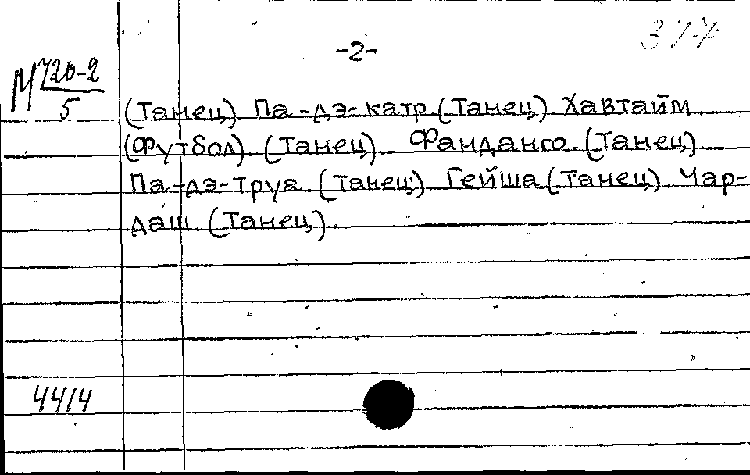 -2-
377
М 720-2
5
(Танец) Па-дэ-катр (Танец) Хавтайм
(Футбол) (Танец) Фанданго (Танец)
Па-дэ-труа (Танец) Гейша (Танец) Чар-
даш (Танец).
4414